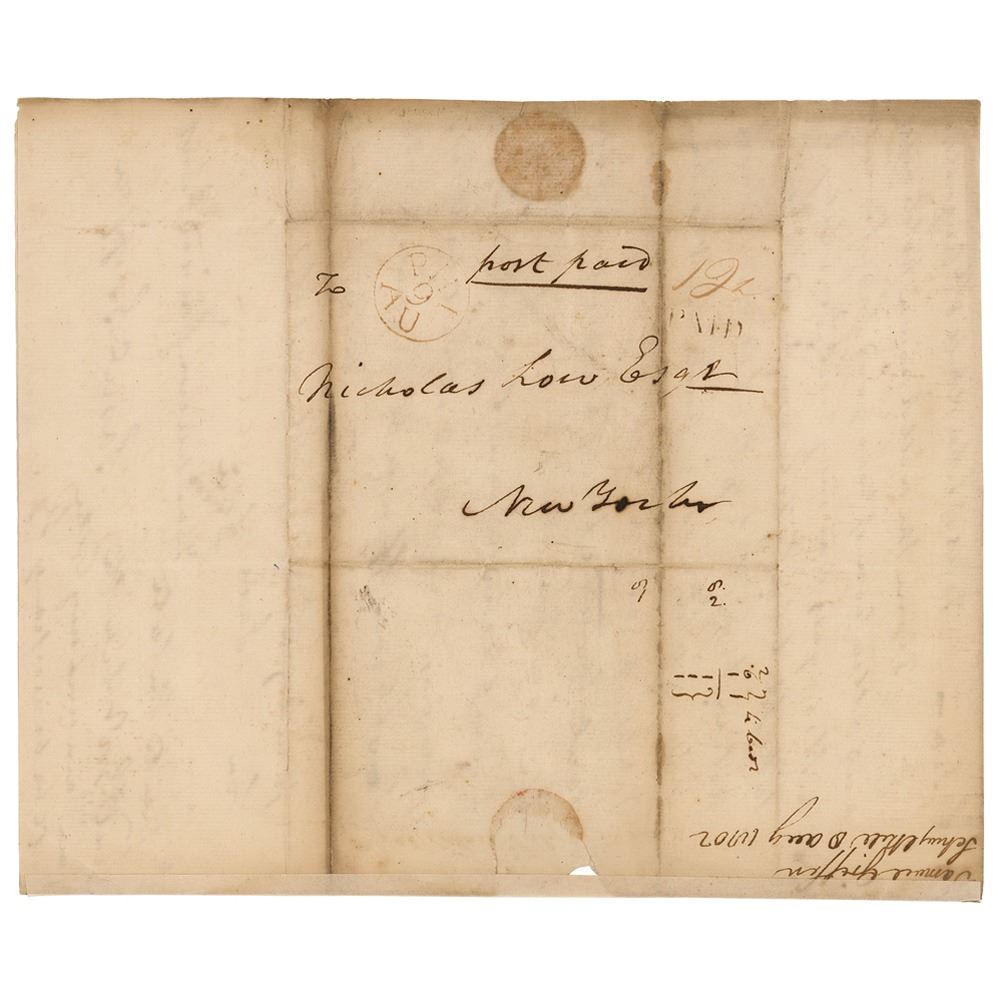 post paid
To
PHI
9
AU
12
PAID
Nicholas Low Esqr
New York
8.
2.
Samuel Griffin
Schuylkill 8 aug